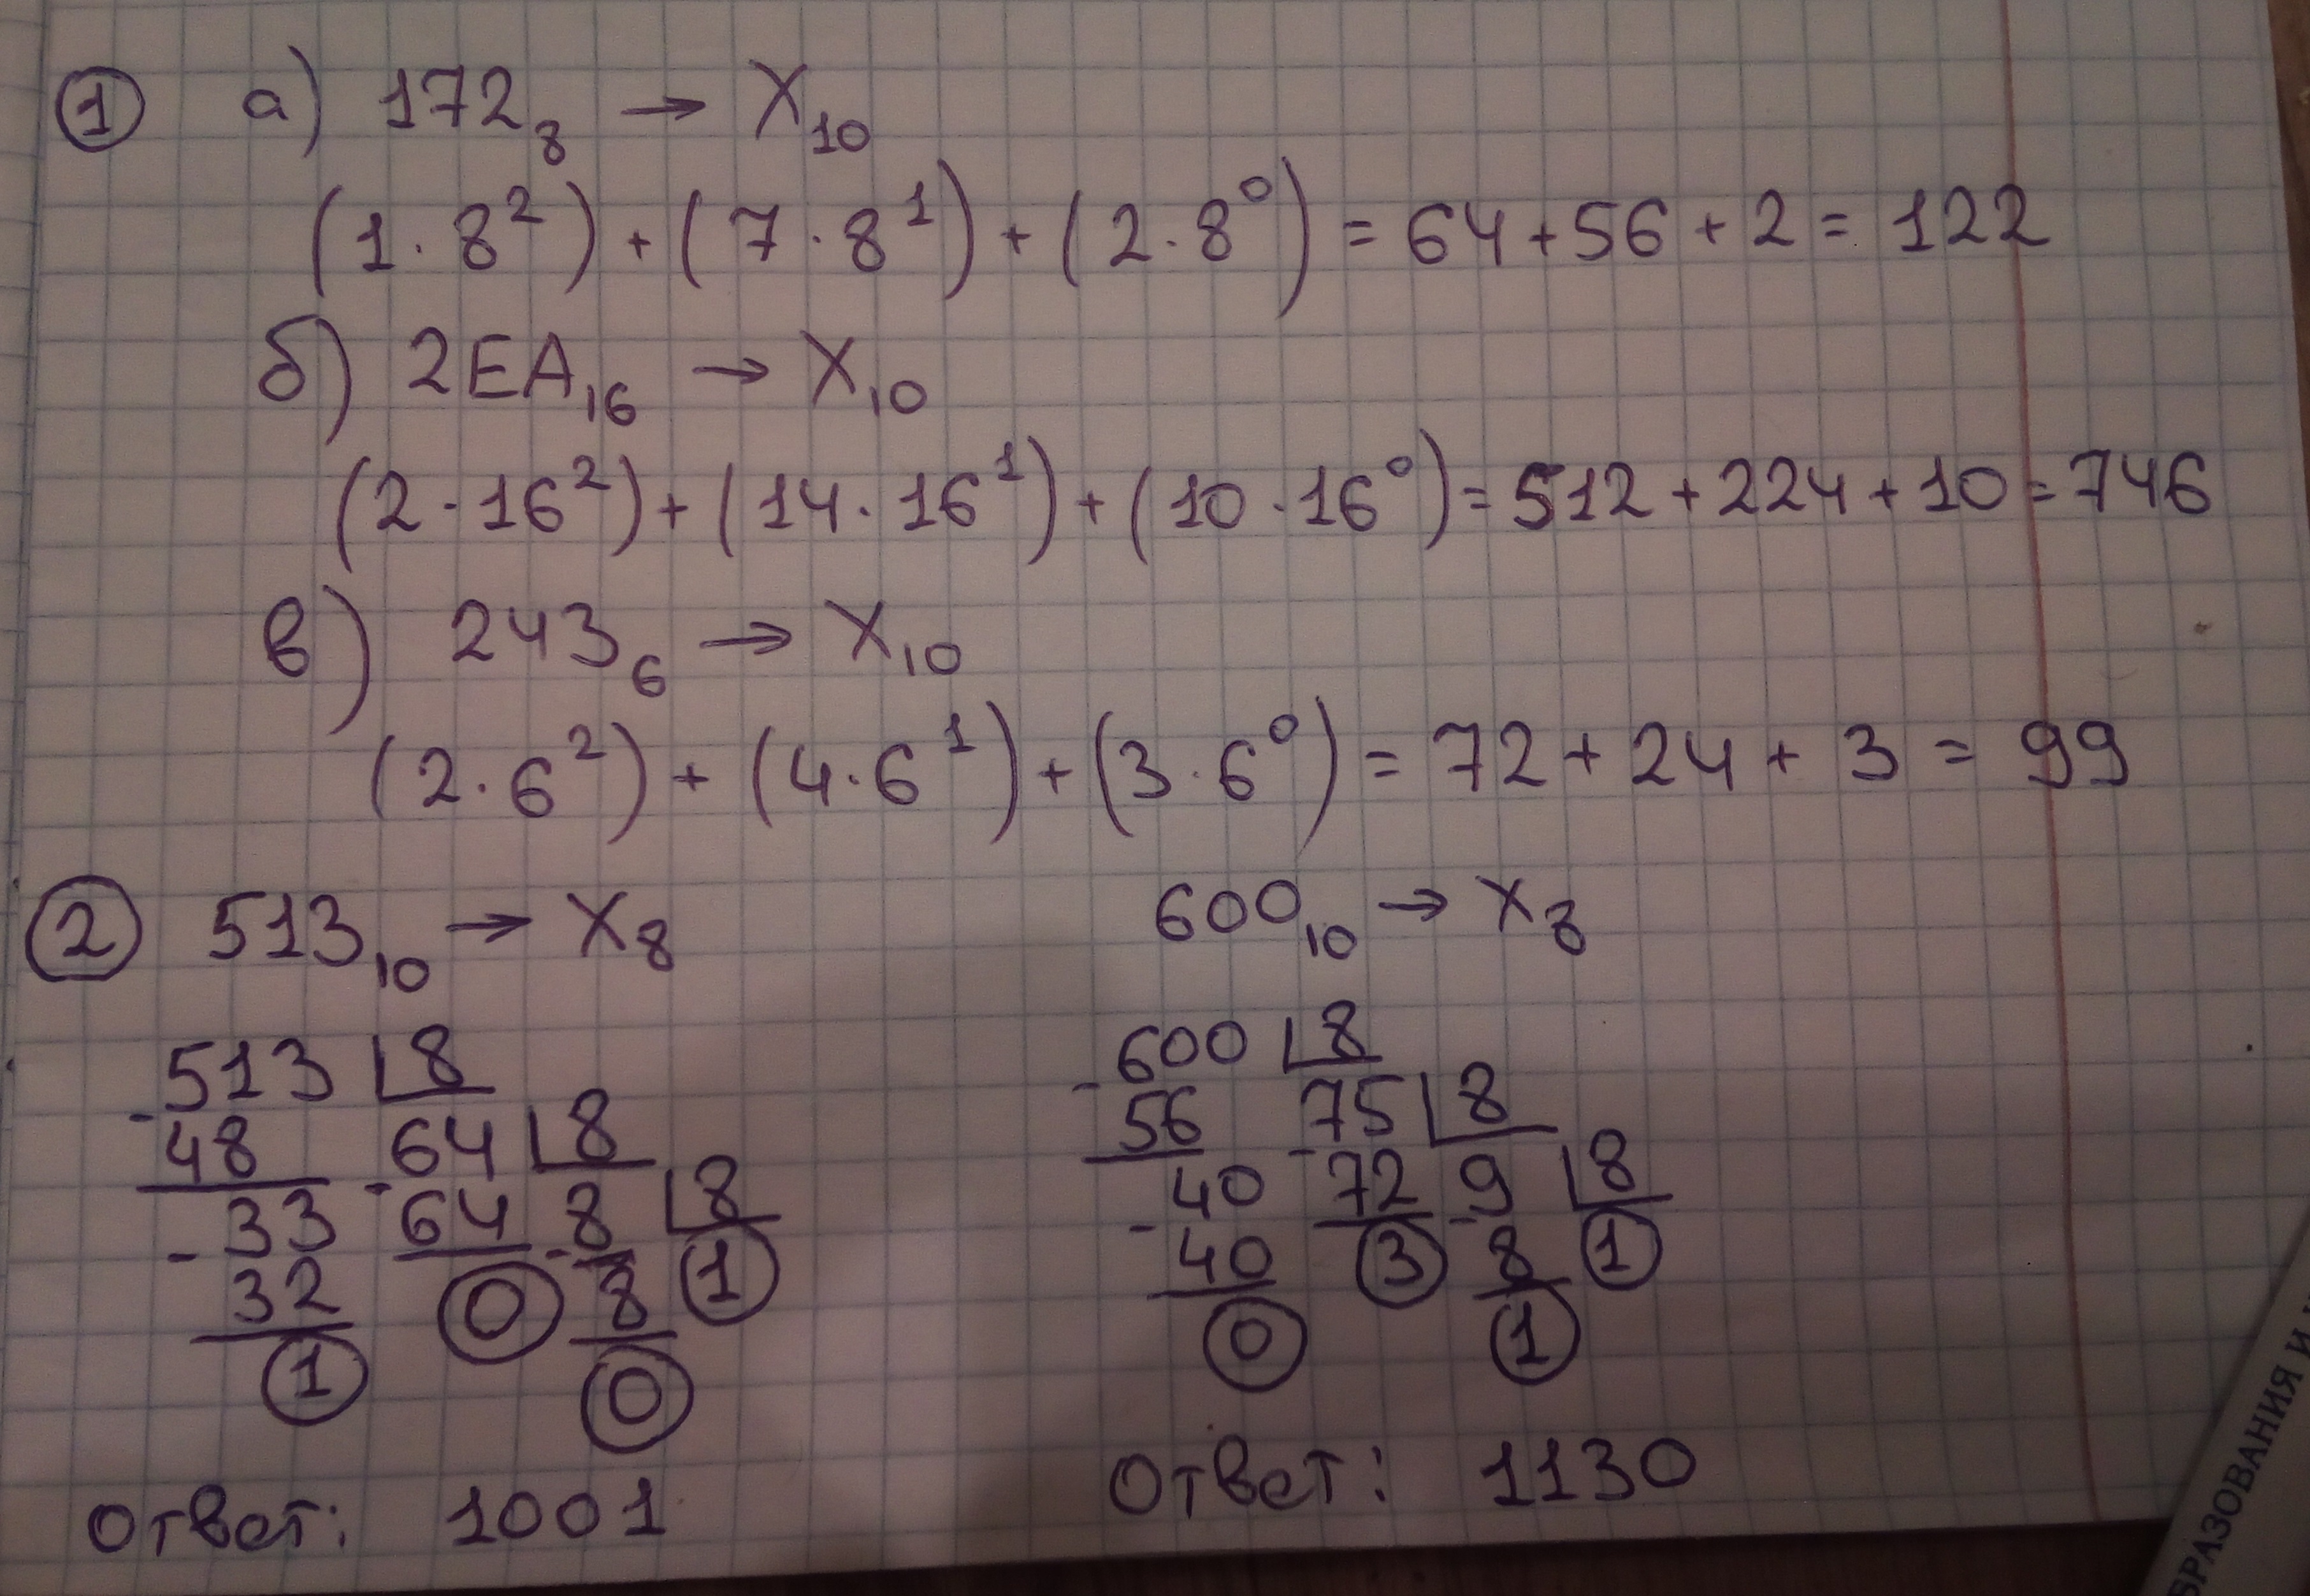 ① а) 172₈ → X₁₀
(1·8²)+(7·8¹)+(2·8⁰)=64+56+2=122
б) 2EA₁₆ → X₁₀
(2·16²)+(14·16¹)+(10·16⁰)=512+224+10=746
в) 243₆ → X₁₀
(2·6²)+(4·6¹)+(3·6⁰)=72+24+3=99
② 513₁₀ → X₈
513 8
-48 64 8
-33 -64 8 8
32 0 -8 1
1 0
Ответ: 1001
600₁₀ → X₈
600 8
-56 75 8
40 -72 9 8
-40 3 -8 1
0 1
Ответ: 1130
БРАЗОВАНИЯ И